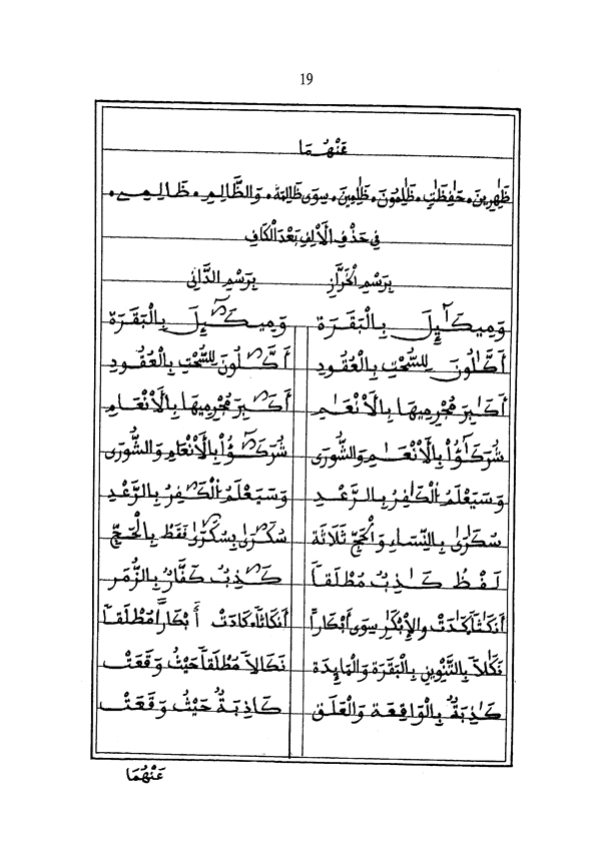 19
عَنْهُمَا
ظَٰهِرِينَ. حَٰفِظَٰتٍ. ظَٰلِمُونَ. ظَٰلِمِينَ. سِوَى ظَالِمَةً. وَالظَّالِمِ. ظَالِمِے.
فِي حَذْفِ الْأَلِفِ بَعْدَ الْكَافِ
بِرَسْمِ الْخَرَّازِ بِرَسْمِ الدَّانِي
وَمِيكَآٰٮِٕيلَ بِالْبَقَرَةِ وَمِيكَٰٓٮِٕيلَ بِالْبَقَرَةِ
أَكَّٰلُونَ لِلسُّحْتِ بِالْعُقُودِ أَكَّٰلُونَ لِلسُّحْتِ بِالْعُقُودِ
أَكَٰبِرَ مُجْرِمِيهَا بِالْأَنْعَٰمِ أَكَٰبِرَ مُجْرِمِيهَا بِالْأَنْعَامِ
شُرَكَٰٓؤُاْ بِالْأَنْعَٰمِ وَالشُّورَى شُرَكَٰٓؤُاْ بِالْأَنْعَامِ وَالشُّورَى
وَسَيَعْلَمُ الْكَٰفِرُ بِالرَّعْدِ وَسَيَعْلَمُ الْكَٰفِرُ بِالرَّعْدِ
سُكَٰرَىٰ بِالنِّسَاءِ وَالْحَجِّ ثَلَاثَة سُكَٰرَىٰ بِسُكَٰرَىٰ فَقَطْ بِالْحَجِّ
لَفْظُ كَٰذِبٌ مُطْلَقاً كَٰذِبٌ كَفَّارٌ بِالزُّمَرِ
أَنكَٰثاً كَٰدَتْ والإِبْكَٰرِ سِوَى أَبْكَاراً أَنكَاثاً. كَادَتْ أَبْكَاراً مُطْلَقاً
نَكَٰلاً بِالتَّنْوِينِ بِالْبَقَرَةِ وَالْمَايِدَة نَكَالاً مُطْلَقاً حَيْثُ وَقَعَتْ
كَٰذِبَةٌ بِالْوَاقِعَةِ وَالْعَلَقِ كَاذِبَةٌ حَيْثُ وَقَعَتْ
عَنْهُمَا